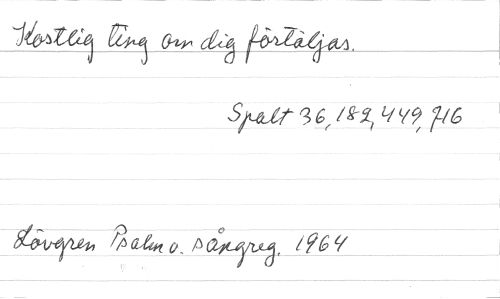 Kostlig ting om dig förtäljas.
Spalt 36, 182, 449, 716
Lövgren Psalm o. sångreg. 1964